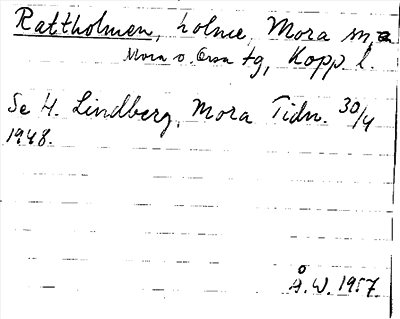 Rattholmen, holme, Mora sn,
Mora o. Orsa tg, Kopp. l.
Se H. Lindberg, Mora Tidn. 30/4
1948.
Å.W. 1957